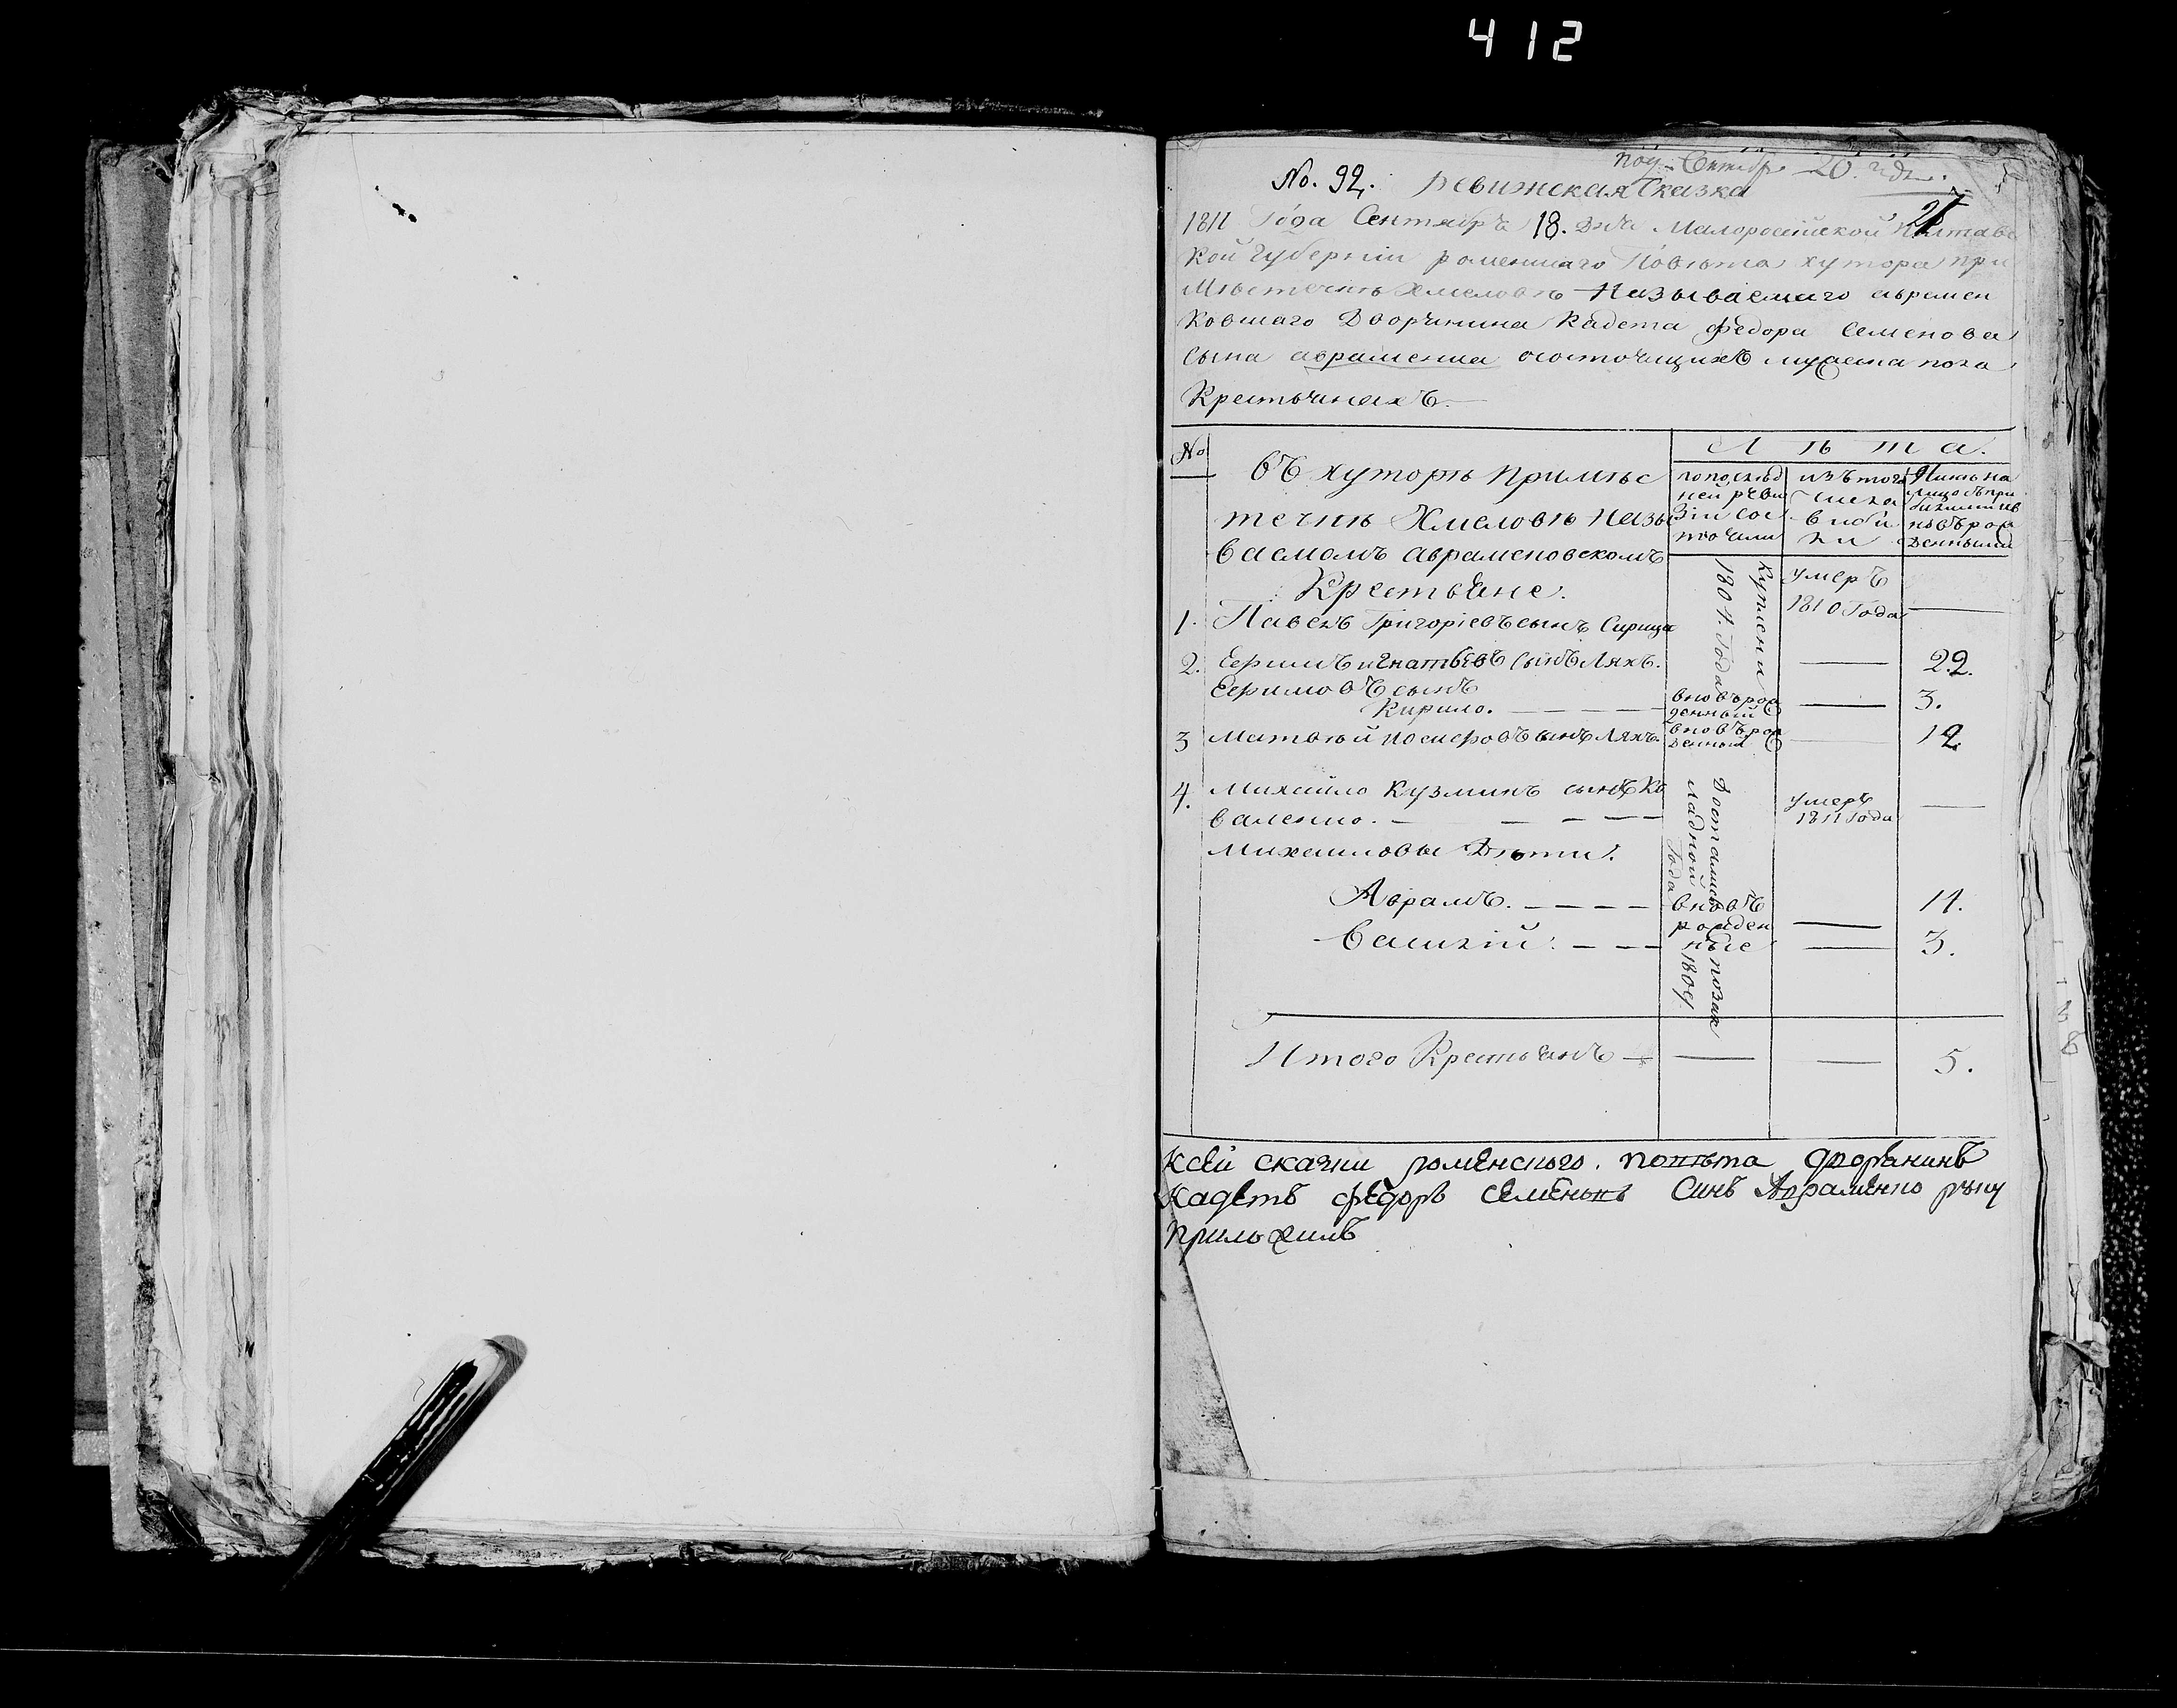 412
No. 92. Ревижская Сказка
Сентябр 20.
27
1811 Года Сентября 18. Дня Малоросійской Полтавс
кой Губерніи роменскаго Повѣта хутора при
Мѣстечкѣ Хмеловѣ Називаемаго аврамен
ковскаго Дворянина Кадета федора Семенова
Сына авраменка осостоящихъ мужеска пола
Крестьянахъ.
No
въ хуторѣ примѣс
течкѣ Хмеловѣ Назы
ваемомъ авраменовскомъ
Крестьяне.
Л ѣ т а.
попослѣд
ней реви
зіи сос
тояли
изъ того
числа
виби
ли
Нинѣ на
лицо съпри
билими ив
новърож
денными
1. Павелъ Григоріевъ сынъ Сирица
Куплени
1804. Года
умеръ
1810 Года —
2. Ефимъ игнатьевъ сынъ Ляхъ. — 22.
Ефимовъ сынъ
Кирило. — вновърож
денный — 3.
3 Матвѣй иосифовъ сынъ Ляхъ. вновърож
денный — 12.
4. Михайло Кузминъ сынъ Ко
валенко. —
Достался позак
ладной 1804
Года
умеръ
1811 Года —
Михайловы Дѣти.
Аврамъ. — вновъ 11.
рожден —
Василій. — ные — 3.
Итого Крестьянъ — — — 5.
Ксей сказки роменского. повѣта дворанинъ
Кадетъ федоръ семеновъ Синъ Авраменко руку
приложилъ